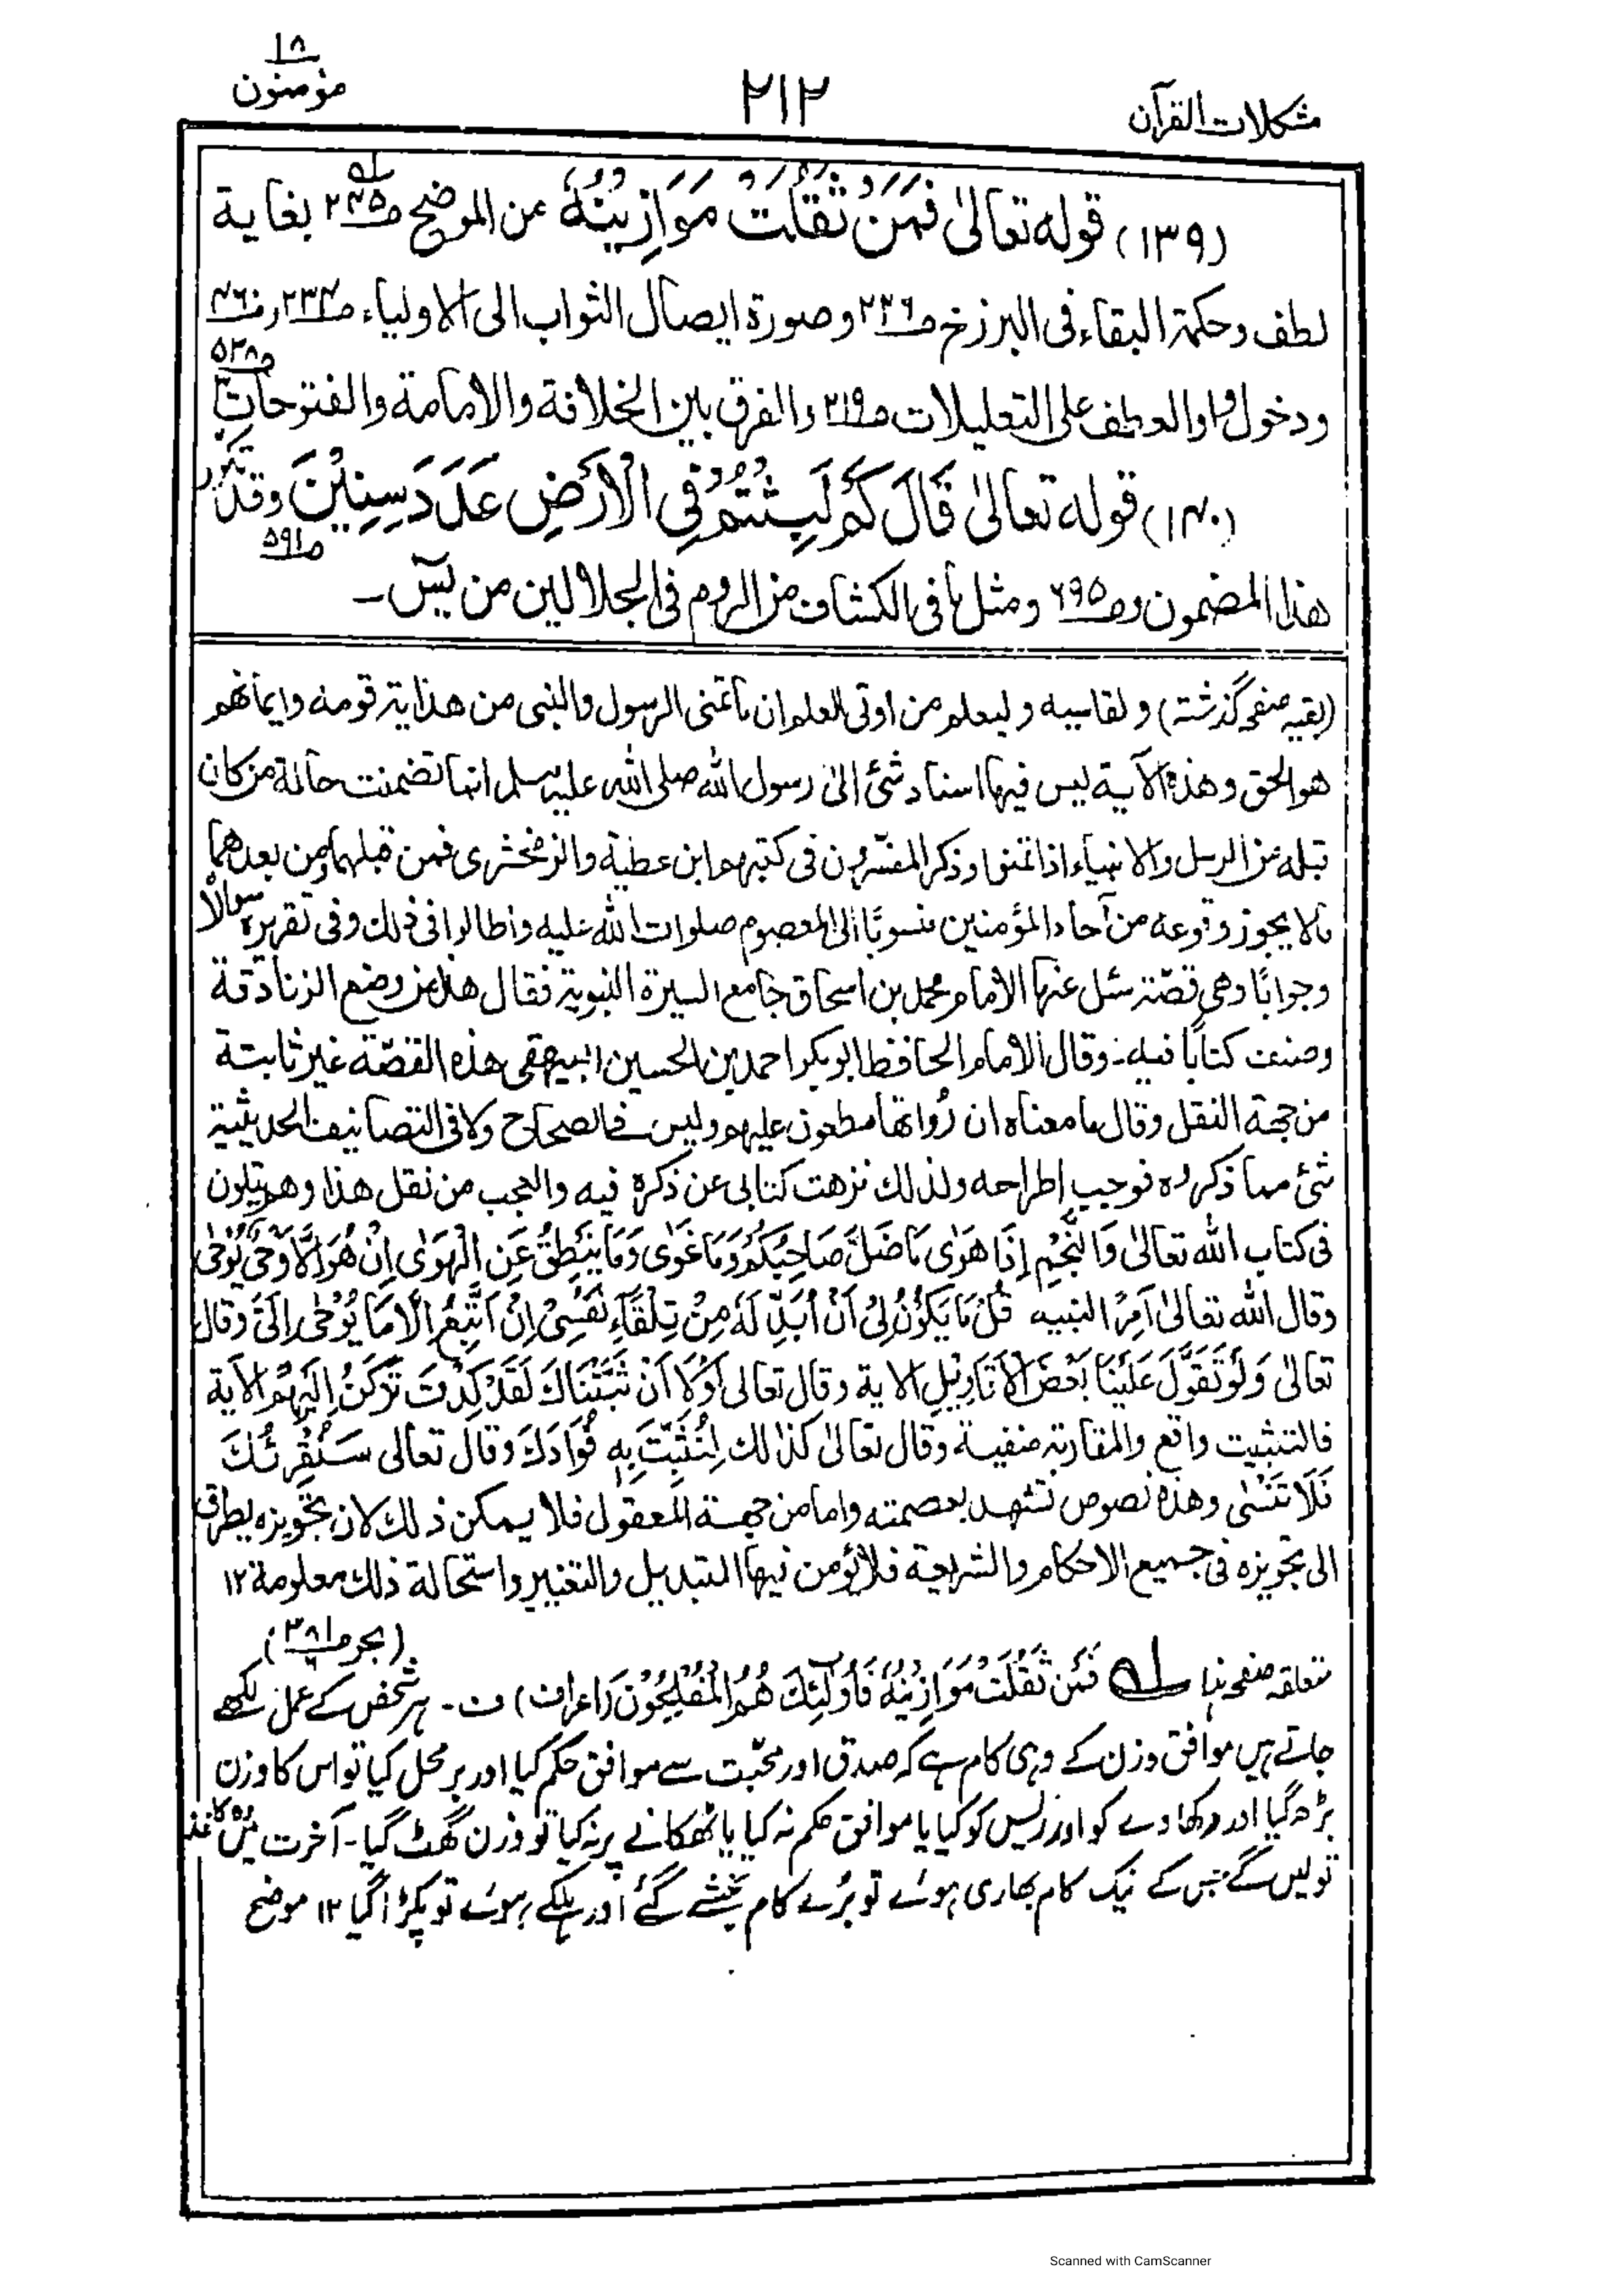 مشكلات القرآن ٢١٢ مؤمنون ١٨
(١٣٩) قوله تعالىٰ فَمَنْ ثَقُلَتْ مَوَازِينُهُ عن الموضح ص٢٤٥ بغاية
لطف وحكمة البقاء فى البرزخ ص٢٣٦ وصورة ايصال الثواب الى الاولياء ص٢٣٤
ودخول واو العطف على التعليلات ص٢١٩ والفرق بين الخلافة والامامة والفتوحات ص٥٢٨
(١٤٠) قوله تعالىٰ قَالَ كَمْ لَبِثْتُمْ فِى الْاَرْضِ عَدَدَ سِنِيْنَ وقد تكرر
هذا المضمون ص٥٩١ وص٦٩٥ ومثل ما فى الكشاف من الروم فى الجلالين من يٰسٓ۔
(بقيه صفحہ گذشتہ) ولقاسيه وليعلم من اوتى العلم ان ما تمنى الرسول والنبى من هداية قومه وايمانهم
هو الحق وهذه الآية ليس فيها اسناد شئ الىٰ رسول الله صلى الله عليه وسلم انما تضمنت حالة من كان
قبله من الرسل والانبياء اذا تمنوا وذكر المفسّرون فى كتبهم وابن عطية والزمخشرى فمن قبلهما ومن بعدهما
مالا يجوز وقوعه من آحاد المؤمنين منسوبًا الى المعصوم صلوات الله عليه واطالوا فى ذلك وفى تقريره سوالًا
وجوابًا وهى قصّة سئل عنها الامام محمد بن اسحاق جامع السيرة النبوية فقال هذا من وضع الزنادقة
وصنف كتابًا فيه۔ وقال الامام الحافظ ابوبكر احمد بن الحسين البيهقى هذه القصّة غير ثابتة
من جهة النقل وقال ما معناه ان رُواتها مطعون عليهم وليس فى الصحاح ولا فى التصانيف الحديثية
شئ مما ذكروه فوجب إطراحه ولذلك نزهت كتابى عن ذكره فيه والعجب من نقل هذا وهم يتلون
فى كتاب الله تعالىٰ وَالنَّجْمِ إِذَا هَوٰى مَا ضَلَّ صَاحِبُكُمْ وَمَا غَوٰى وَمَا يَنْطِقُ عَنِ الْهَوٰى اِنْ هُوَ اِلَّا وَحْىٌ يُّوْحٰى
وقال الله تعالىٰ آمرًا لنبيه قُلْ مَا يَكُوْنُ لِىْ اَنْ اُبَدِّلَهٗ مِنْ تِلْقَآءِ نَفْسِىْ اِنْ اَتَّبِعُ اِلَّا مَا يُوْحٰى اِلَىَّ وقال
تعالىٰ وَلَوْ تَقَوَّلَ عَلَيْنَا بَعْضَ الْاَقَاوِيْلِ الاية وقال تعالى لَوْلَا اَنْ ثَبَّتْنَاكَ لَقَدْ كِدْتَ تَرْكَنُ اِلَيْهِمْ الاية
فالتثبيت واقع والمقاربة منفية وقال تعالىٰ كذٰلك لِنُثَبِّتَ بِهٖ فُؤَادَكَ وقال تعالى سَنُقْرِئُكَ
فَلَا تَنْسٰى وهذه نصوص تشهد بعصمته واما من جهة المعقول فلا يمكن ذلك لان تجويزه يطرق
الى تجويزه فى جميع الاحكام والشريعة فلا يؤمن فيها التبديل والتغيير واستحالة ذلك معلومة ١٢
(بحر ص٣٨١)
متعلقہ صفحہ ہذا لے فَمَنْ ثَقُلَتْ مَوَازِيْنُهٗ فَاُولٰٓئِكَ هُمُ الْمُفْلِحُوْنَ (اعراف) ف۔ ہر شخص کے عمل لکھے
جاتے ہیں موافق وزن کے وہی کام ہے کہ صدق اور محبّت سے موافق حکم کیا اور برمحل کیا تو اس کا وزن
بڑھ گیا اور دکھاوے کو اور ریس کو کیا یا موافق حکم نہ کیا یا ٹھکانے پر نہ کیا تو وزن گھٹ گیا۔ آخرت میں وہ کاغذ
تولیں گے جس کے نیک کام بھاری ہوئے تو بُرے کام بخشے گئے اور ہلکے ہوئے تو پکڑا گیا ١٢ موضح
Scanned with CamScanner